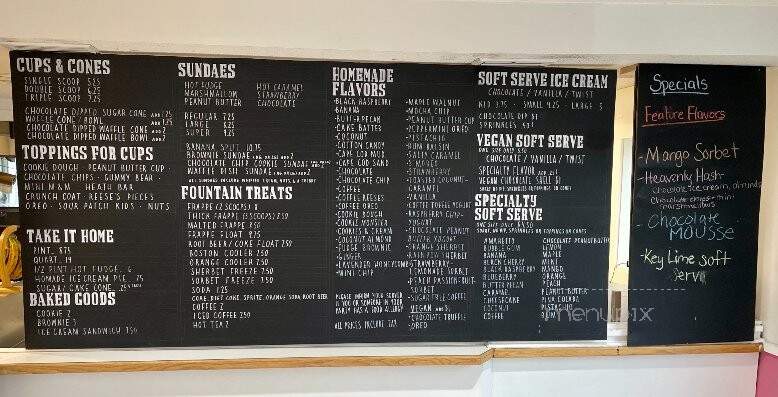 CUPS & CONES
SINGLE SCOOP 5.25
DOUBLE SCOOP 6.25
TRIPLE SCOOP 7.25
CHOCOLATE DIPPED SUGAR CONE ADD 1.25
WAFFLE CONE / BOWL ADD 1.25
CHOCOLATE DIPPED WAFFLE CONE ADD 2
CHOCOLATE DIPPED WAFFLE BOWL ADD 2
TOPPINGS FOR CUPS
COOKIE DOUGH - PEANUT BUTTER CUP
CHOCOLATE CHIPS - GUMMY BEAR -
MINI M&M HEATH BAR
CRUNCH COAT - REESE'S PIECES
OREO - SOUR PATCH KIDS - NUTS
TAKE IT HOME
PINT
QUART
1/2 PINT HOT FUDGE. 6
HOMADE ICECREAM PIE
SUGAR / CAKE CONE
BAKED GOODS
COOKIE 2
BROWNIE 3
ICE CREAM SANDWICH 7.50
SUNDAES
HOT FUDGE HOT CARAMEL
MARSHMALLOW STRAWBERRY
PEANUT BUTTER CHOCOLATE
REGULAR 7.25
LARGE 8.25
SUPER 9.25
BANANA SPLIT 10.75
BROWNIE SUNDAE
CHOCOLATE CHIP COOKIE SUNDAE
WAFFLE DISH SUNDAE
FOUNTAIN TREATS
FRAPPE (2 SCOOPS) 8
THICK FRAPPE (3 SCOOPS) 9.50
MALTED FRAPPE 8.50
FRAPPE FLOAT 9.25
ROOT BEER / COKE FLOAT 7.50
BOSTON COOLER 7.50
ORANGE COOLER 7.50
SHERBET FREEZE 7.50
SORBET FREEZE 7.50
SODA 1.75
COKE, DIET COKE, SPRITE, ORANGE SODA, ROOT BEER
COFFEE 2
ICED COFFEE 2.50
HOT TEA 2
HOMEMADE FLAVORS
-BLACK RASPBERRY
-BANANA
-BUTTER PECAN
-CAKE BATTER
-COCONUT
-COTTON CANDY
-CAPE COD MUD
-CAPE COD SAND
-CHOCOLATE
-CHOCOLATE CHIP
-COFFEE
-COFFEE REESES
-COFFEE OREO
-COOKIE DOUGH
-COOKIE MONSTER
-COOKIES & CREAM
-COCONUT ALMOND
-FUDGE BROWNIE
-GINGER
-LAVENDER HONEYCOMB
-MINT CHIP
PLEASE INFORM YOUR SERVER
IF YOU OR SOMEONE IN YOUR
PARTY HAS A FOOD ALLERGY
ALL PRICES INCLUDE TAX
-MAPLE WALNUT
-MOCHA CHIP
-PEANUT BUTTER CUP
-PEPPERMINT OREO
-PISTACHIO
-RUM RAISIN
-SALTY CARAMEL
-S'MORES
-STRAWBERRY
-TOASTED COCONUT-
CARAMEL
-VANILLA
-COFFEE TOFFEE
-RASPBERRY CHIP-
YOGURT
-CHOCOLATE PEANUT
BUTTER YOGURT
-ORANGE SHERBET
-RAINBOW SHERBET
LEMONADE SORBET
-PEACH PASSIONFRUIT-
SORBET
-SUGAR FREE COFFEE
VEGAN
-CHOCOLATE TRUFFLE
-OREO
SOFT SERVE ICE CREAM
CHOCOLATE / VANILLA / TWIST
KID 3.75 - SMALL 4.25 - LARGE 5
CHOCOLATE DIP $1
SPRINKLES 50¢
VEGAN SOFT SERVE
ONE SIZE ONLY
CHOCOLATE / VANILLA / TWIST
SPECIALTY FLAVOR ADD
VEGAN CHOCOLATE SHELL $1
SPECIALTY SOFT SERVE
ONE SIZE ONLY
AMARETTO
BUBBLE GUM
BANANA
BLACK CHERRY
BLACK RASPBERRY
BLUEBERRY
BUTTER PECAN
CARAMEL
CHEESECAKE
COCONUT
COFFEE
CHOCOLATE PEANUTBUTTER
LEMON
MAPLE
MINT
MANGO
ORANGE
PEACH
PEANUT BUTTER
PINA COLADA
PISTACHIO
RUM
Specials
Feature Flavors
-Mango Sorbet
-Heavenly Hash-
chocolate ice cream, almonds
chocolate chips + mini
marshmallows
-Chocolate
MOUSSE
-Key Lime soft
serve
menupix